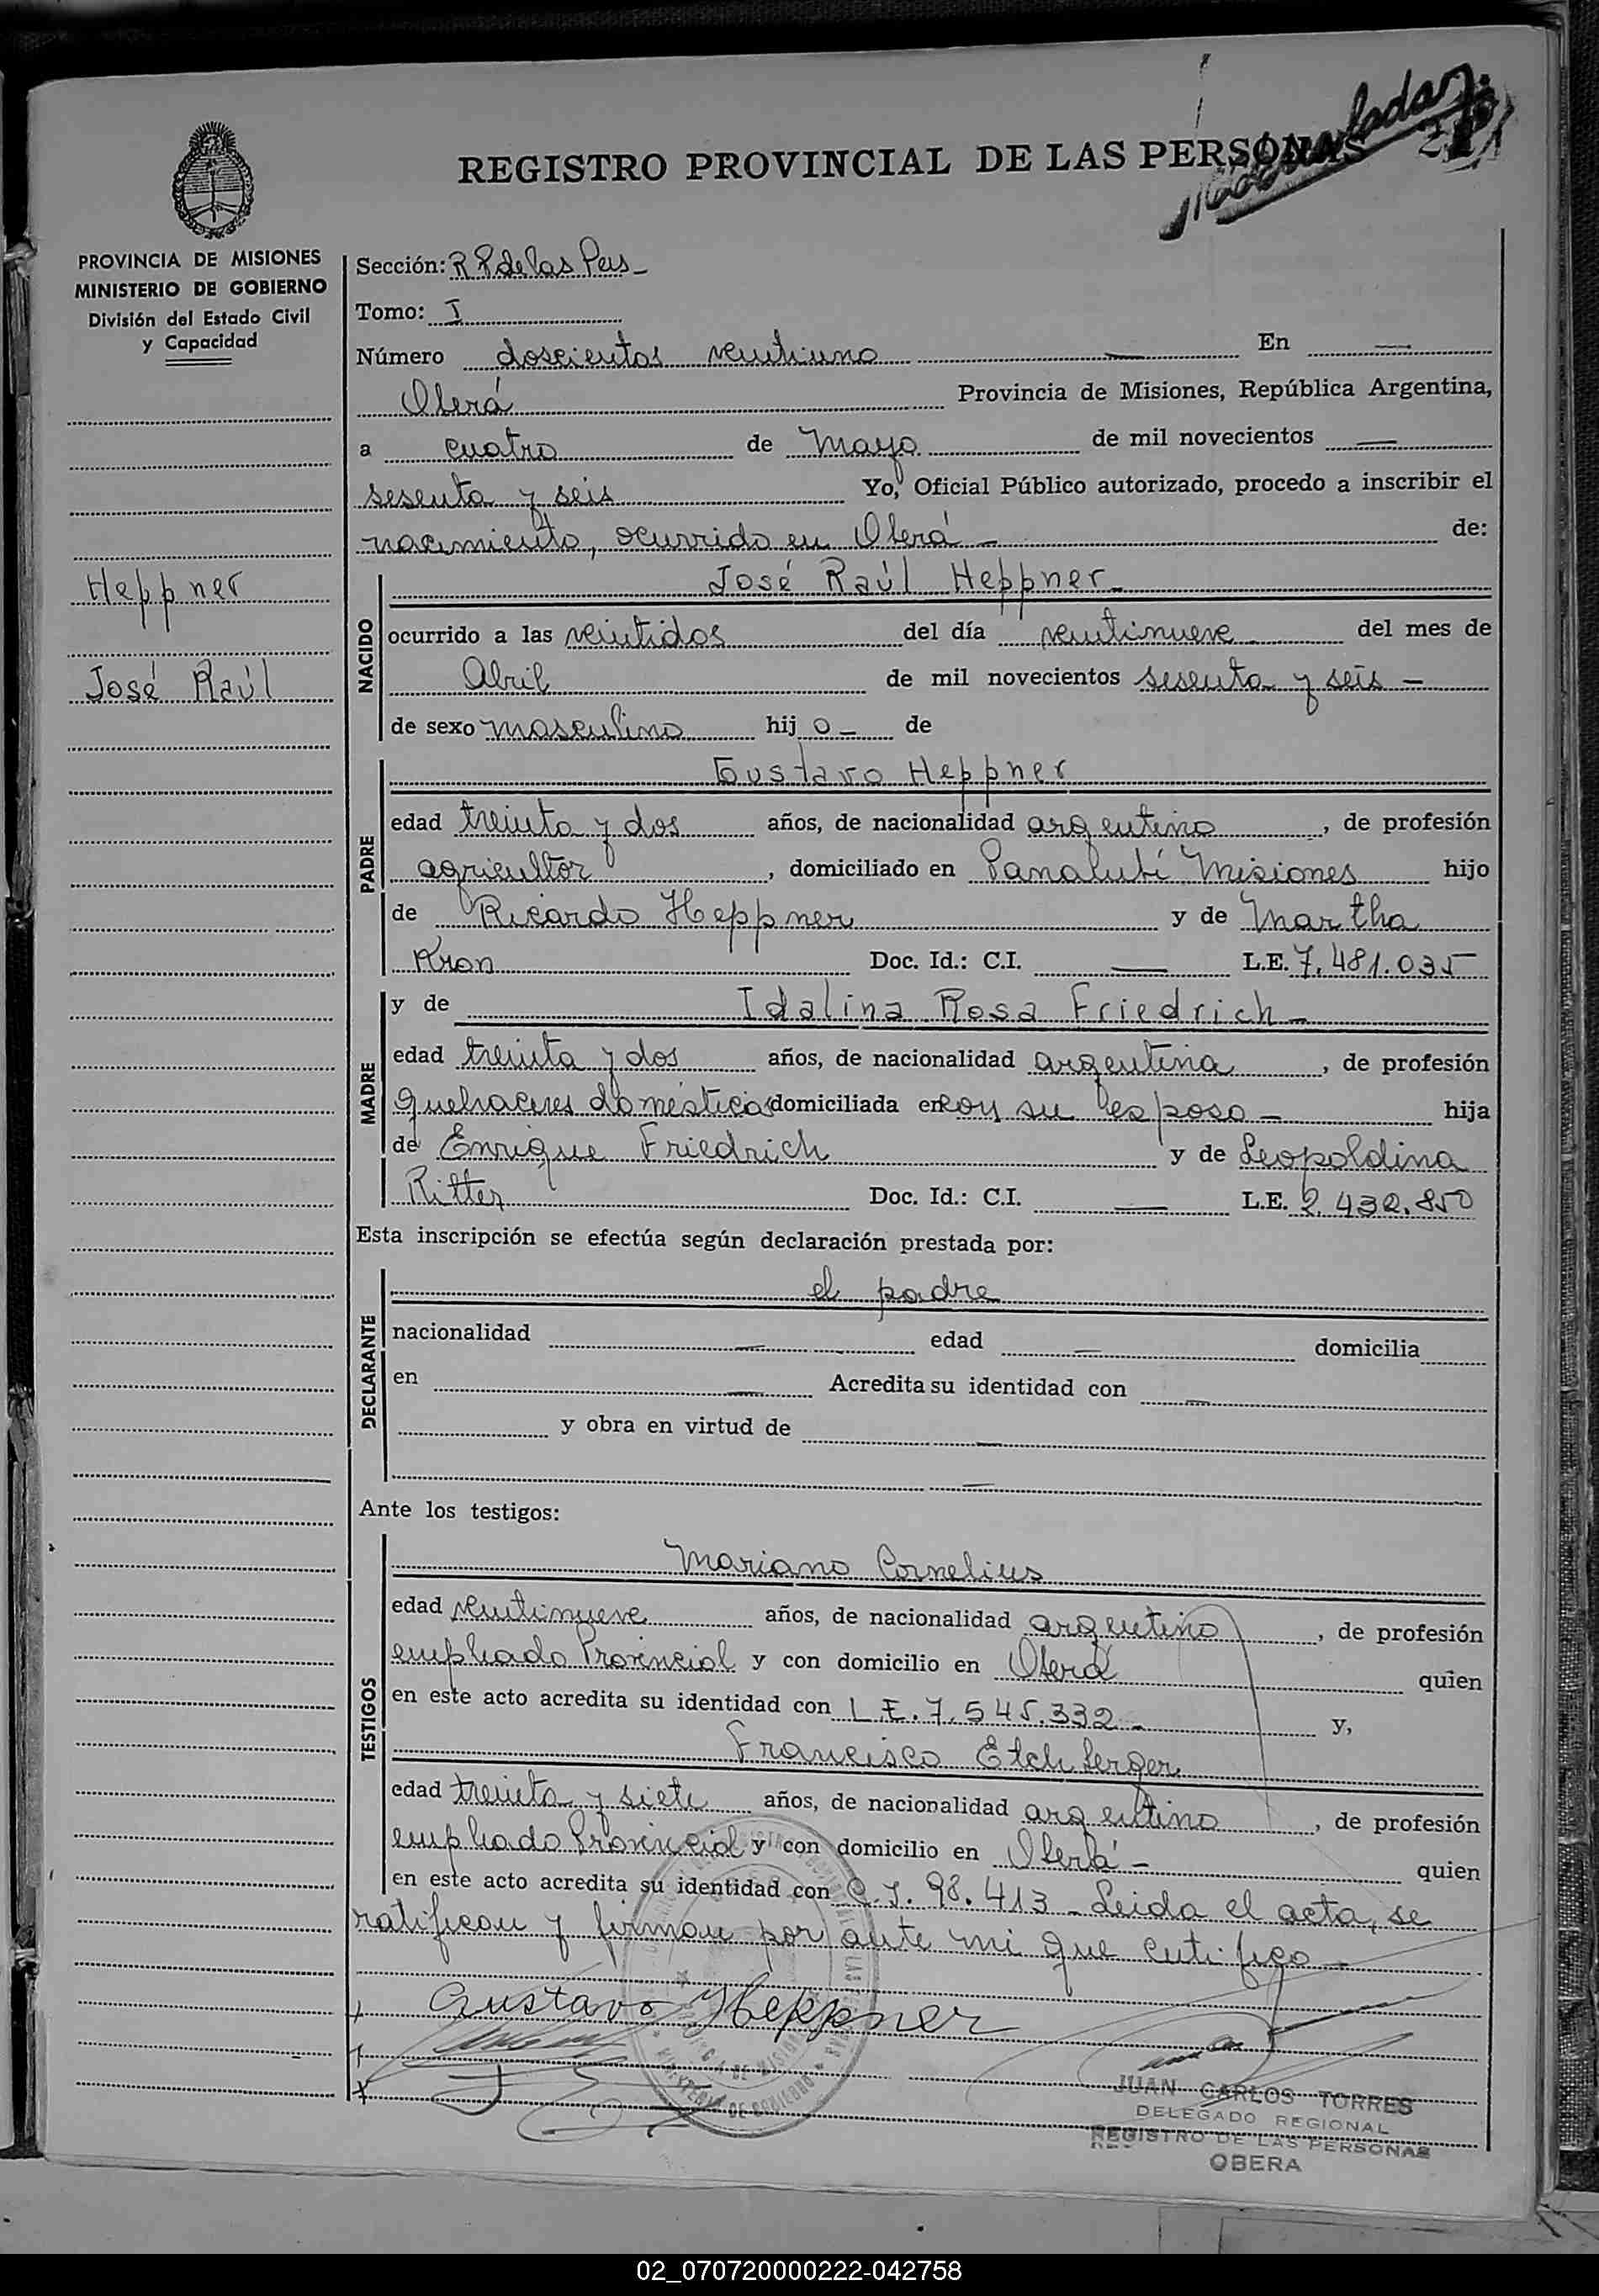 REGISTRO PROVINCIAL DE LAS PERSONAS
PROVINCIA DE MISIONES
MINISTERIO DE GOBIERNO
División del Estado Civil
y Capacidad
Heppner
José Raúl
Sección: R P de las Pers_
Tomo: I
Número doscientos veintiuno — En —
Oberá Provincia de Misiones, República Argentina,
a cuatro de Mayo de mil novecientos —
sesenta y seis Yo, Oficial Público autorizado, procedo a inscribir el
nacimiento, ocurrido en Oberá — de:
NACIDO
José Raúl Heppner_
ocurrido a las veintidos del día veintinueve del mes de
Abril de mil novecientos sesenta y seis —
de sexo masculino hijo_ de
PADRE
Gustavo Heppner
edad treinta y dos años, de nacionalidad argentino, de profesión
agricultor, domiciliado en Panambí Misiones hijo
de Ricardo Heppner y de Martha
Kron Doc. Id.: C.I. — L.E. 7.481.035
MADRE
y de Idalina Rosa Friedrich_
edad treinta y dos años, de nacionalidad argentina, de profesión
quehaceres domésticos domiciliada en con su esposo — hija
de Enrique Friedrich y de Leopoldina
Ritter Doc. Id.: C.I. — L.E. 2.432.850
Esta inscripción se efectúa según declaración prestada por:
DECLARANTE
el padre
nacionalidad — edad — domicilia
en — Acredita su identidad con —
y obra en virtud de —
—
Ante los testigos:
TESTIGOS
Mariano Cornelius
edad veintinueve años, de nacionalidad argentino, de profesión
empleado Provincial y con domicilio en Oberá quien
en este acto acredita su identidad con L.E. 7.545.332 — y,
Francisco Etchberger
edad treinta y siete años, de nacionalidad argentino, de profesión
empleado Provincial y con domicilio en Oberá — quien
en este acto acredita su identidad con C.I. 98.413 — Leida el acta, se
ratifican y firman por ante mi que certifico —
Gustavo Heppner
JUAN CARLOS TORRES
DELEGADO REGIONAL
REGISTRO DE LAS PERSONAS
OBERA
02_070720000222-042758